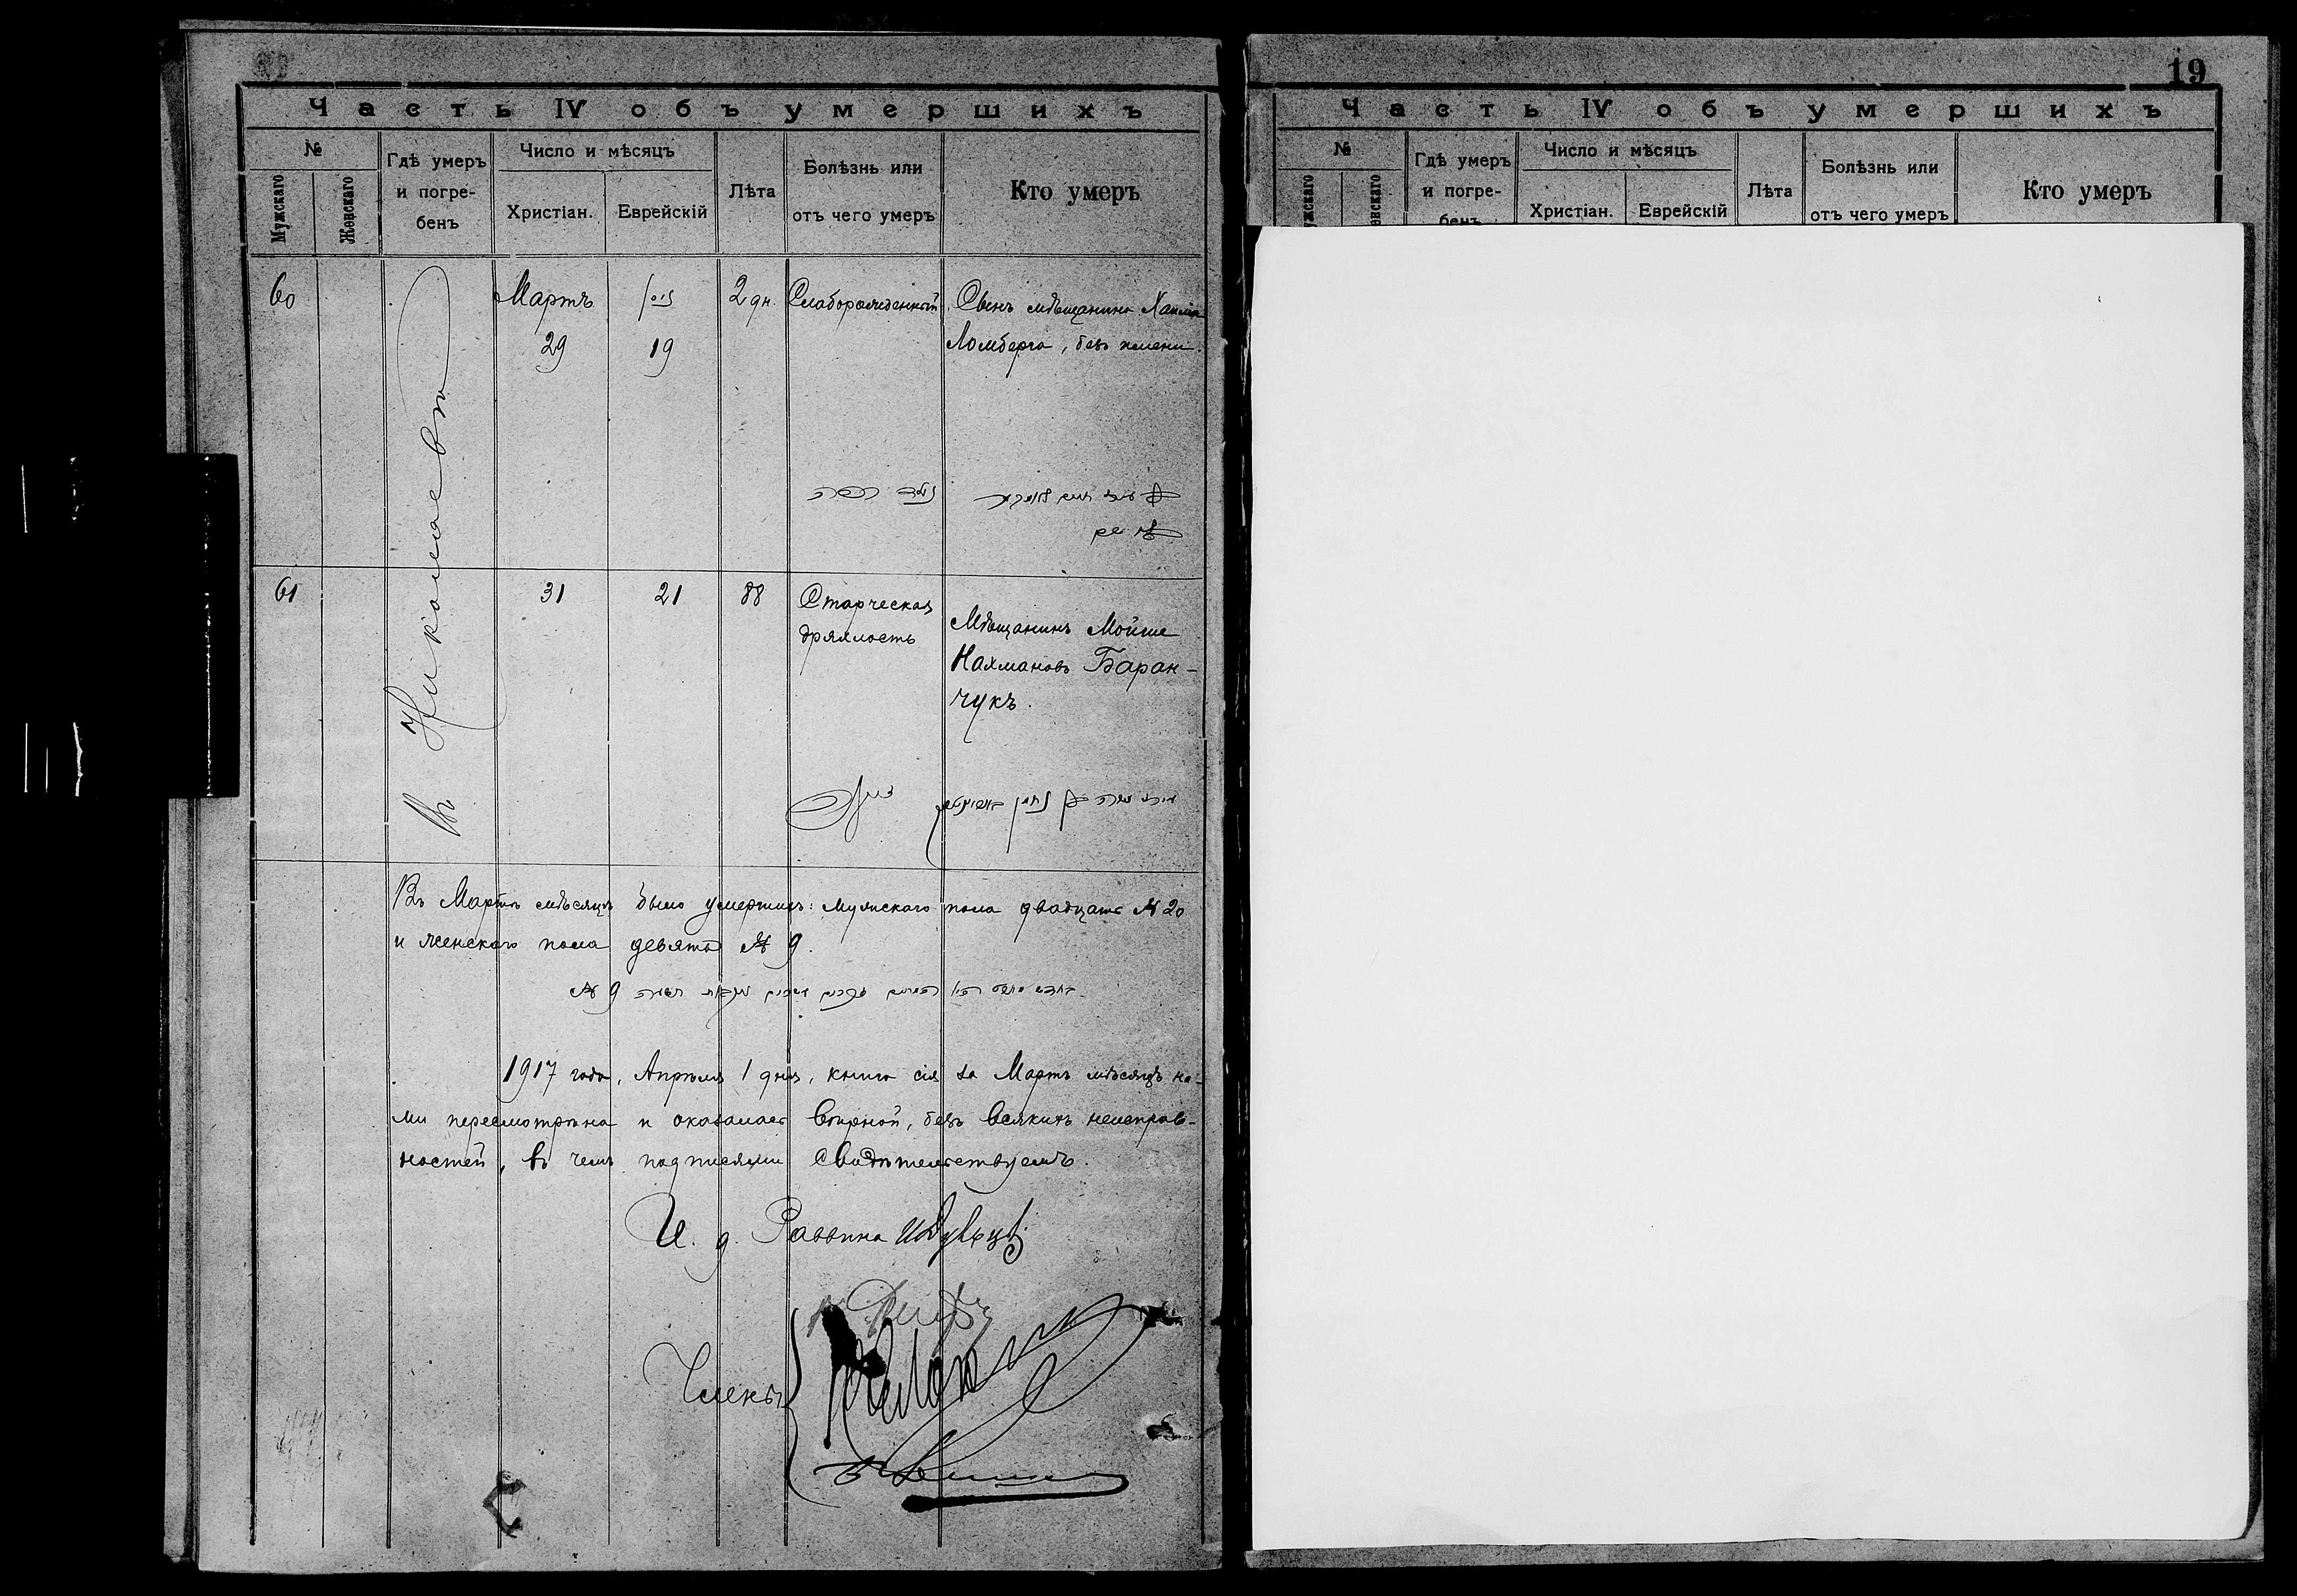 Часть IV объ умершихъ
№
Мужскаго
Женскаго
Гдѣ умеръ
и погре-
бенъ
Число и мѣсяцъ
Христіан.
Еврейскій
Лѣта
Болѣзнь или
отъ чего умеръ
Кто умеръ
Въ Николаевѣ
60
Мартъ
29
ניסן
19
2 дн.
Слаборожденный
Сынъ мѣщанина Хаима
Ломберга, безъ имени.
61
31
21
88
Старческая
дряхлость
Мѣщанинъ Мойше
Нахмановъ Баран-
чукъ.
Въ Мартѣ мѣсяцѣ было умершихъ: мужскаго пола двадцать № 20
и женскаго пола девять № 9.
№ 9
1917 года, Апрѣля 1 дня, книга сія за Мартъ мѣсяцъ на-
ми пересмотрѣна и оказалась вѣрной, безъ всякихъ неисправ-
ностей, въ чемъ подписями свидѣтельствуемъ.
И. д. Раввина
Члены
19
Часть IV объ умершихъ
№
Гдѣ умеръ
и погре-
бенъ
Число и мѣсяцъ
Христіан.
Еврейскій
Лѣта
Болѣзнь или
отъ чего умеръ
Кто умеръ